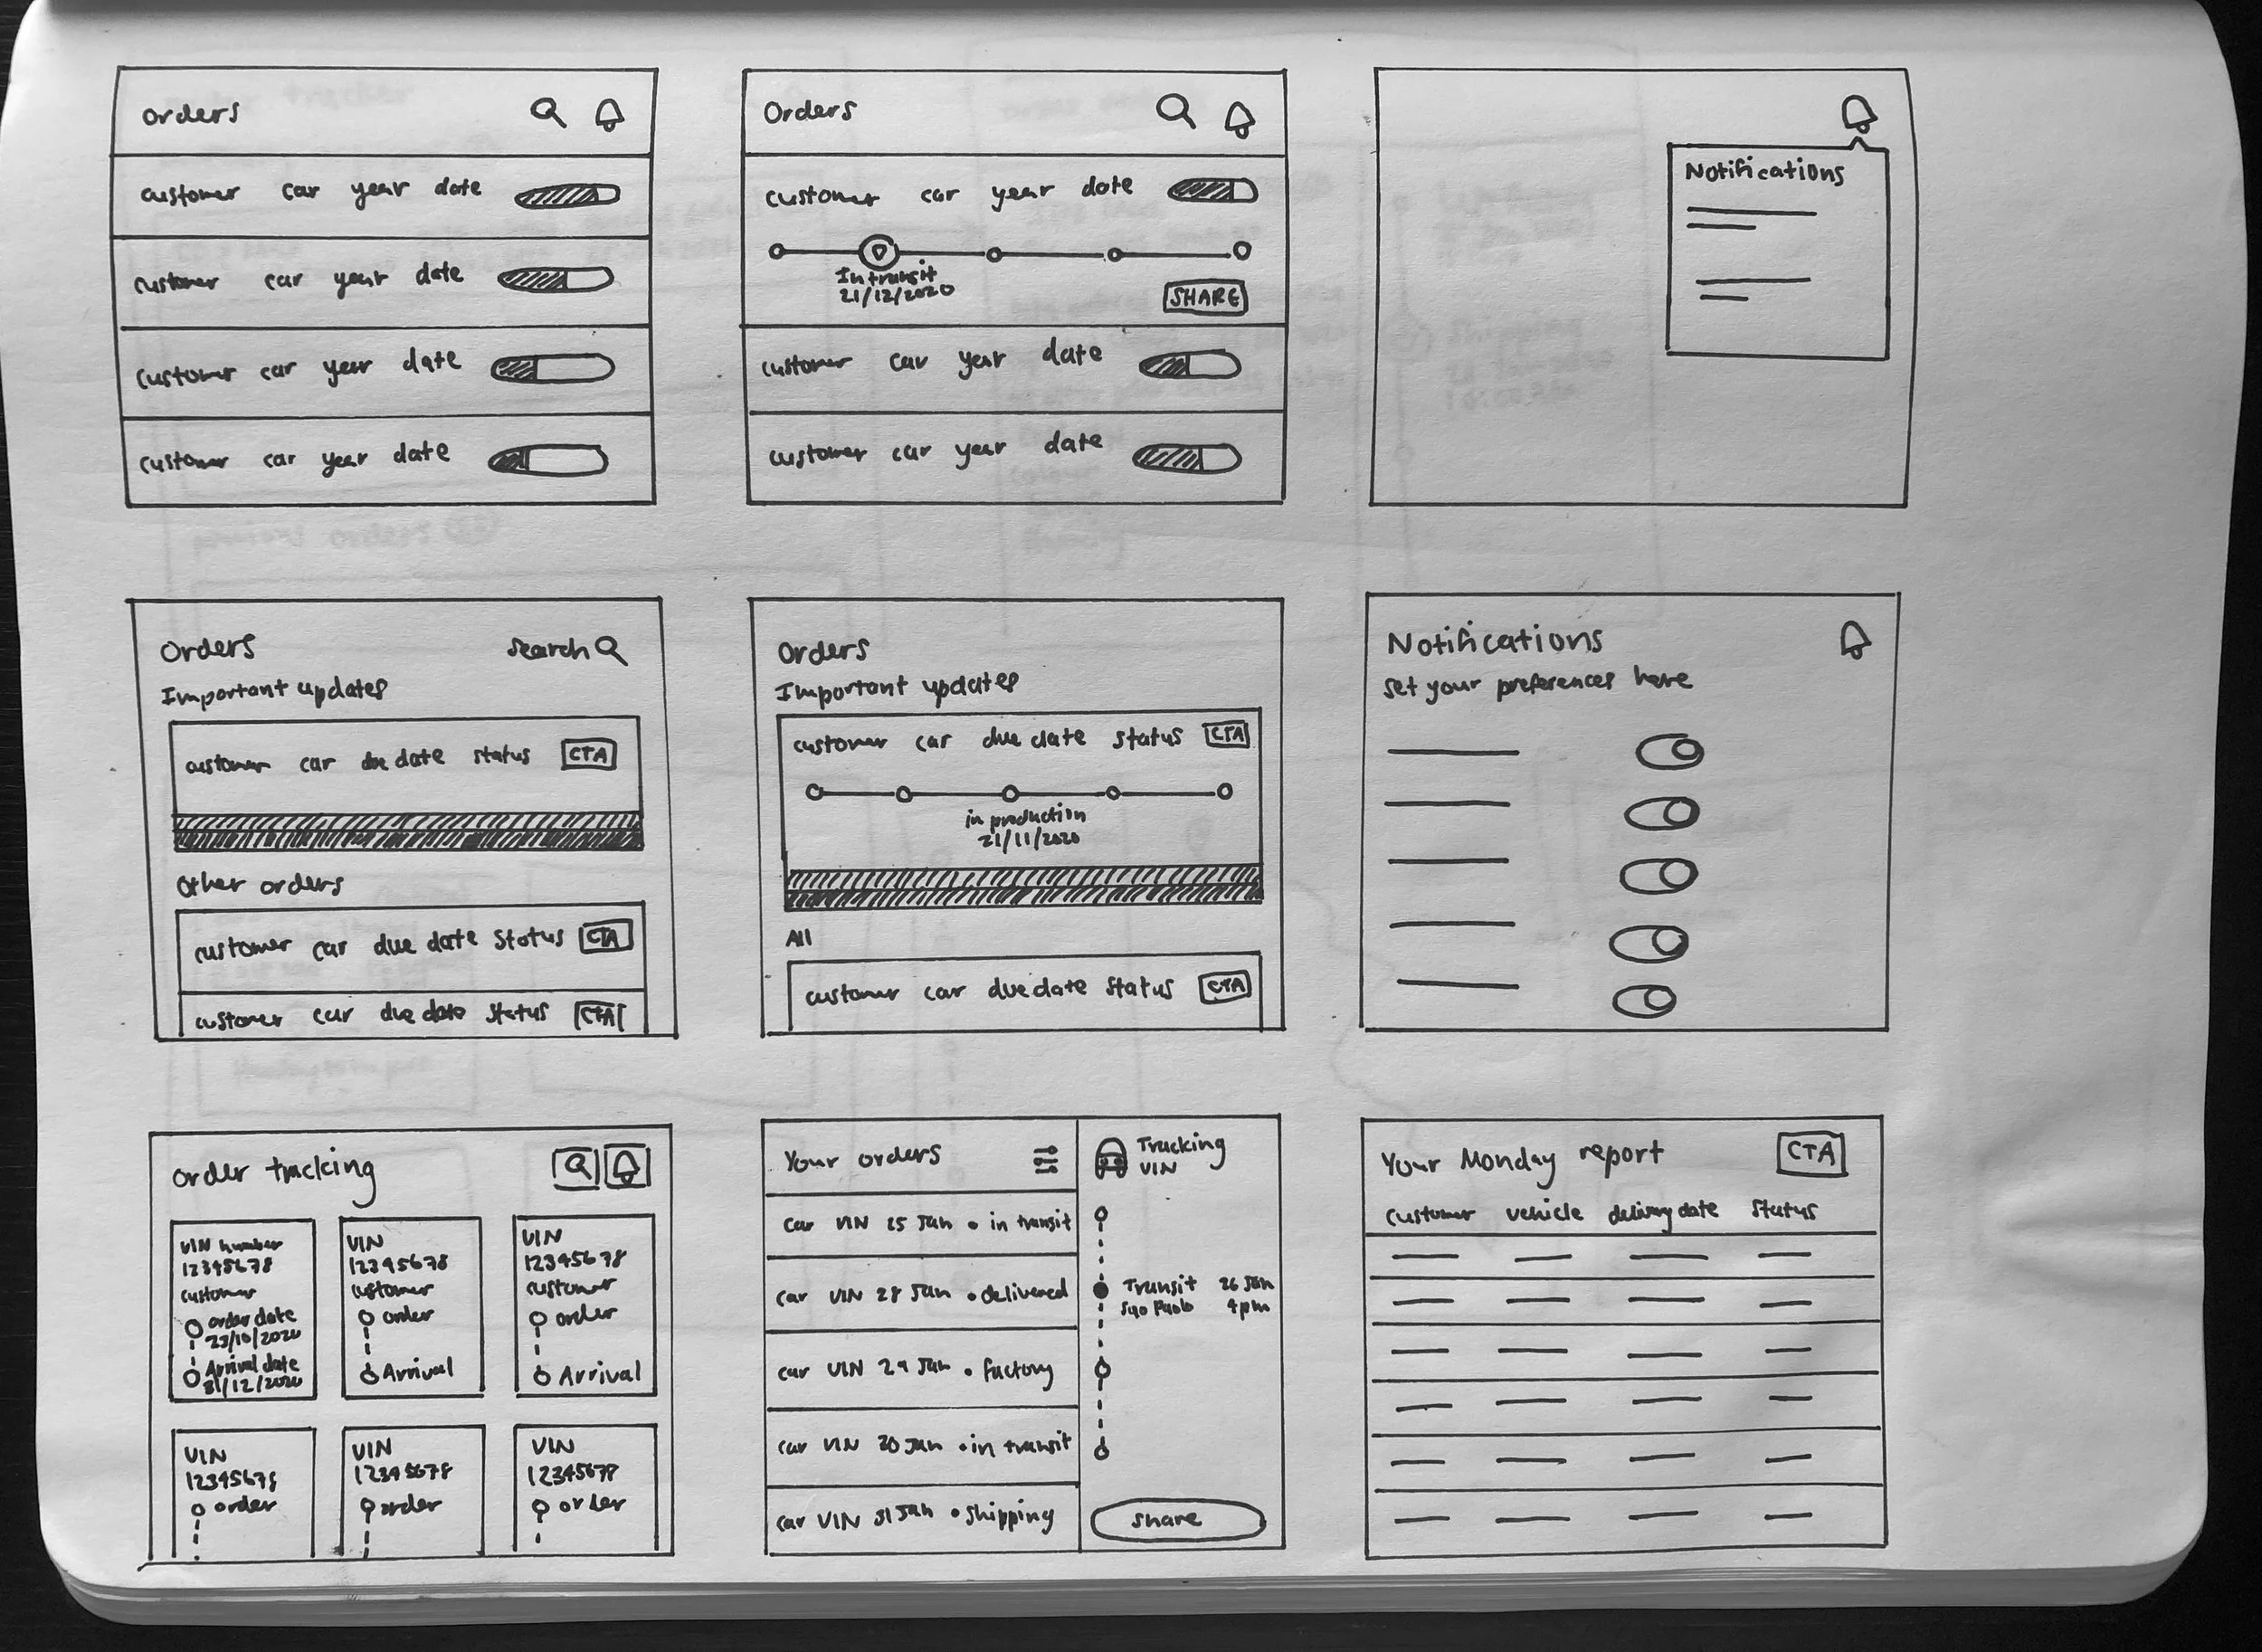 Orders
customer car year date
customer car year date
customer car year date
customer car year date
Orders
customer car year date
In transit
21/12/2020
SHARE
customer car year date
customer car year date
Notifications
Orders Search
Important updates
customer car due date status CTA
Other orders
customer car due date status CTA
customer car due date status CTA
Orders
Important updates
customer car due date status CTA
in production
21/11/2020
All
customer car due date status CTA
Notifications
set your preferences here
order tracking
VIN number
12345678
customer
order date
23/10/2020
Arrival date
31/12/2020
VIN
12345678
customer
order
Arrival
VIN
12345678
customer
order
Arrival
VIN
12345678
order
VIN
12345678
order
VIN
12345678
order
Your orders
car VIN 25 Jan • in transit
car VIN 28 Jan • delivered
car VIN 29 Jan • factory
car VIN 30 Jan • in transit
car VIN 31 Jan • shipping
Tracking
VIN
Transit 26 Jan
Sao Paolo 4pm
share
Your Monday report CTA
Customer vehicle delivery date status